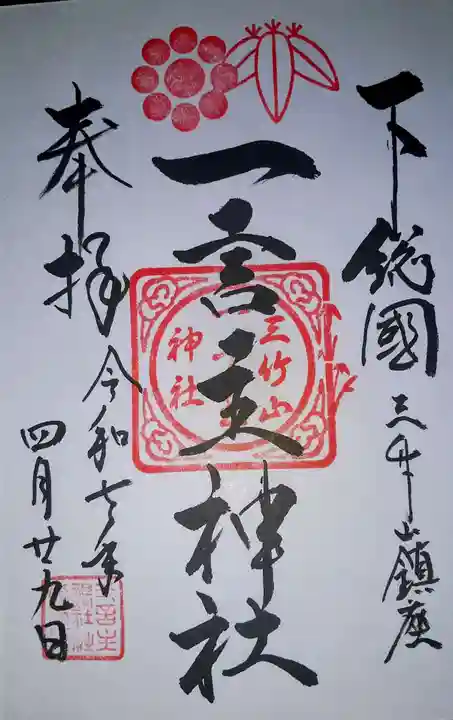 下総國 三竹山鎮座
一言主神社
三竹山
神社
奉拝 令和七年
四月廿九日